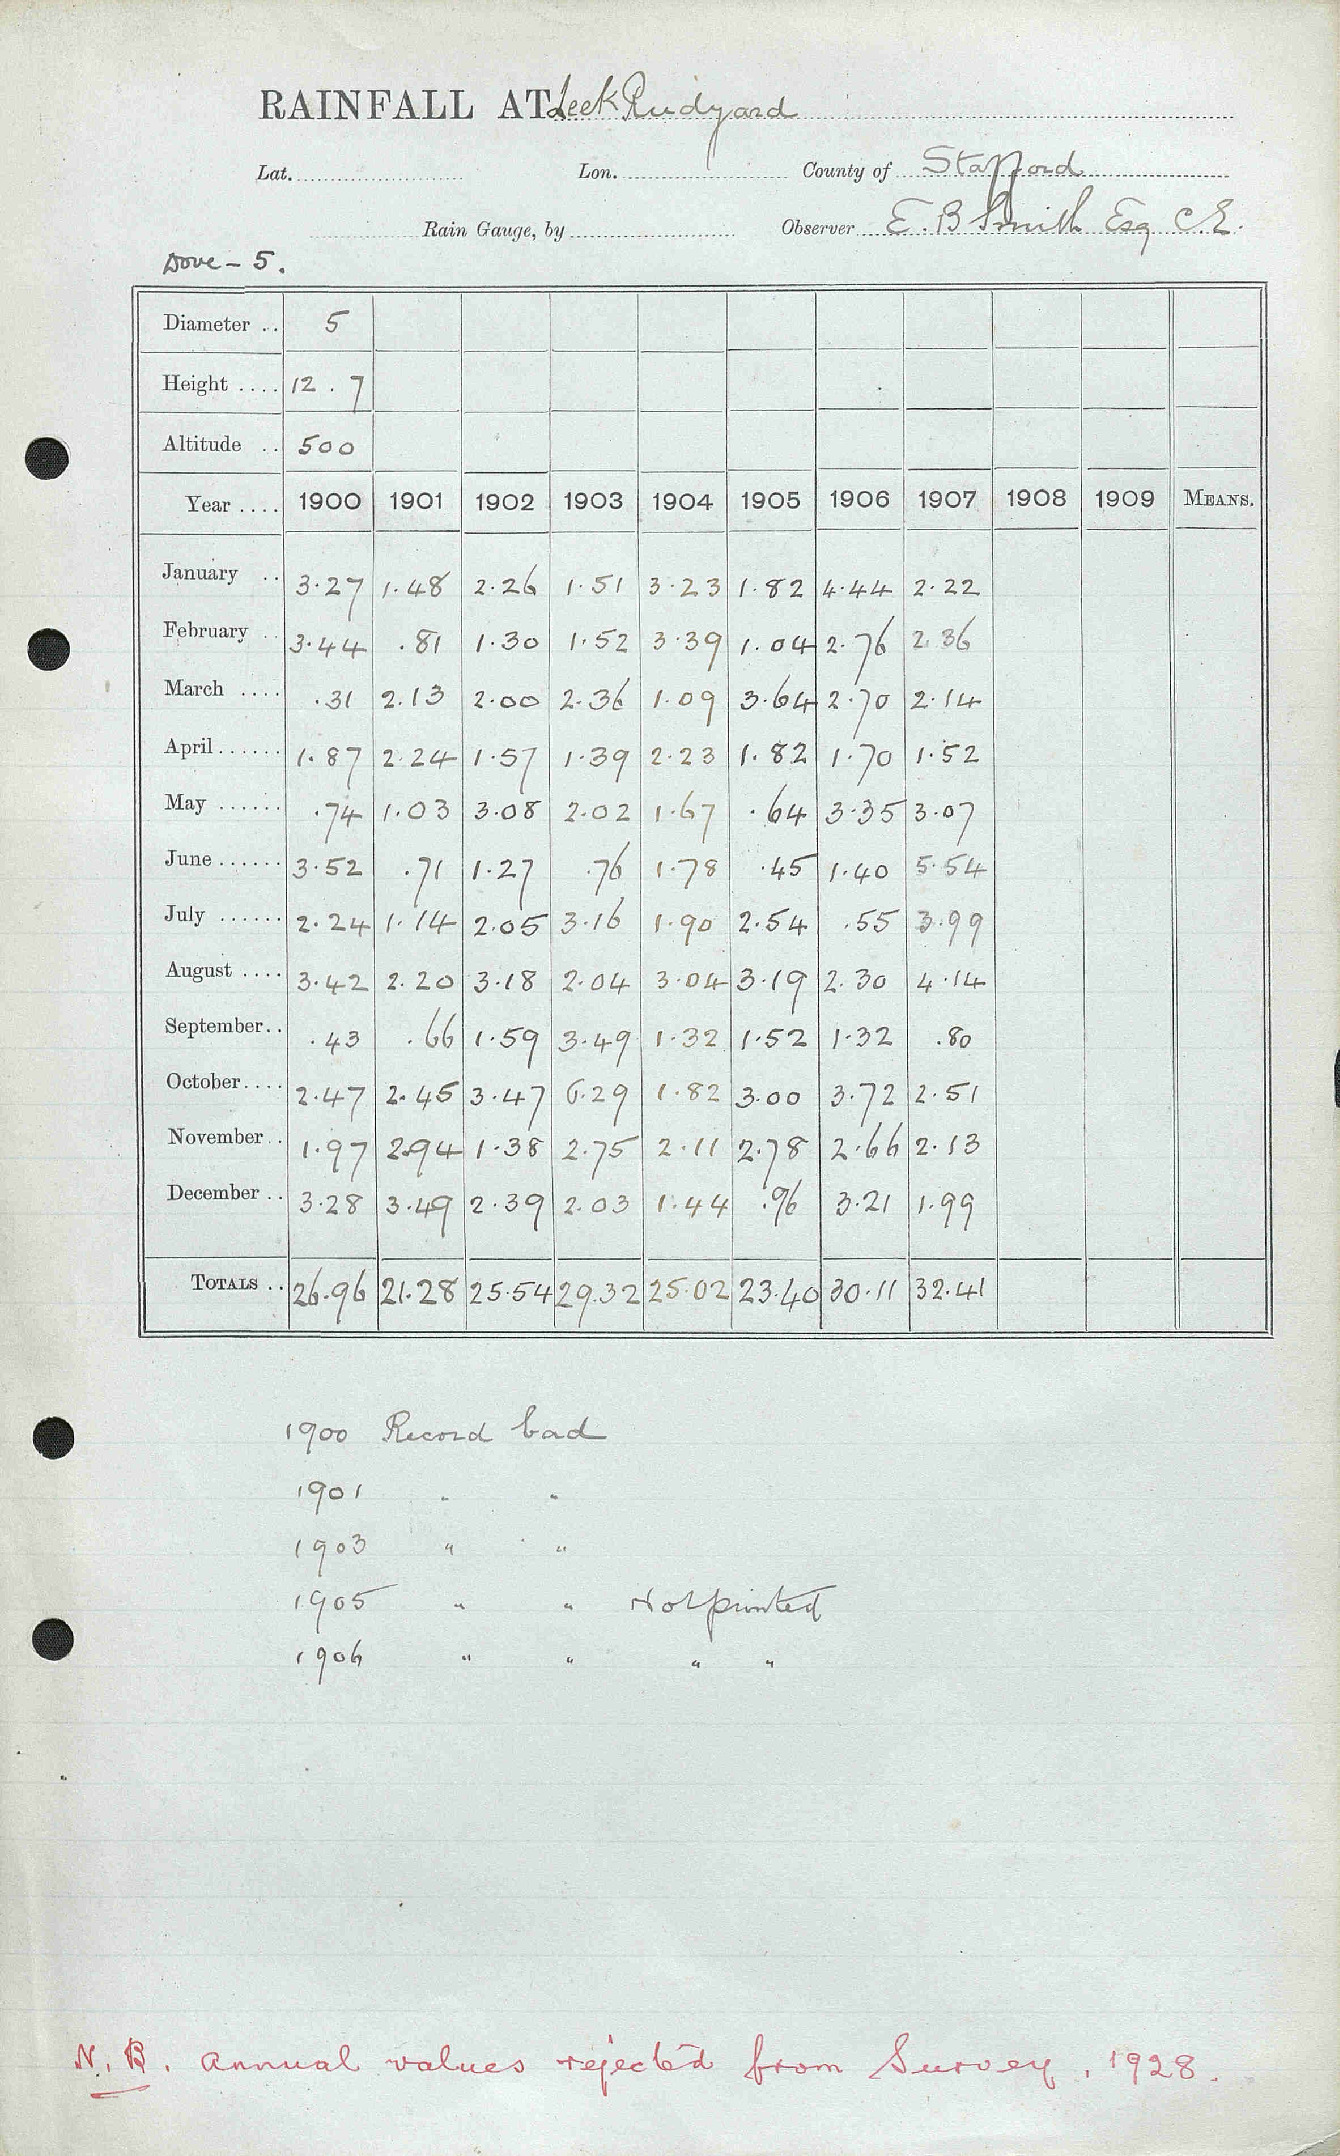 RAINFALL AT Leek Rudyard
Lat. Lon. County of Stafford
Rain Gauge, by Observer E. B Smith Esq C.E.
Dove - 5.
Diameter .. 5
Height .... 12 . 7
Altitude .. 500
Year .... 1900 1901 1902 1903 1904 1905 1906 1907 1908 1909 MEANS.
January .. 3.27 1.48 2.26 1.51 3.23 1.82 4.44 2.22
February .. 3.44 .81 1.30 1.52 3.39 1.04 2.76 2.36
March .... .31 2.13 2.00 2.36 1.09 3.64 2.70 2.14
April...... 1.87 2.24 1.57 1.39 2.23 1.82 1.70 1.52
May ...... .74 1.03 3.08 2.02 1.67 .64 3.35 3.07
June ...... 3.52 .71 1.27 .76 1.78 .45 1.40 5.54
July ...... 2.24 1.14 2.05 3.16 1.90 2.54 .55 3.99
August .... 3.42 2.20 3.18 2.04 3.04 3.19 2.30 4.14
September.. .43 .66 1.59 3.49 1.32 1.52 1.32 .80
October.... 2.47 2.45 3.47 6.29 1.82 3.00 3.72 2.51
November .. 1.97 2.94 1.38 2.75 2.11 2.78 2.66 2.13
December .. 3.28 3.49 2.39 2.03 1.44 .96 3.21 1.99
TOTALS .. 26.96 21.28 25.54 29.32 25.02 23.40 30.11 32.41
1900 Record bad
1901 " "
1903 " "
1905 " " Not printed
1906 " " " "
N.B. Annual values rejected from Survey, 1928.